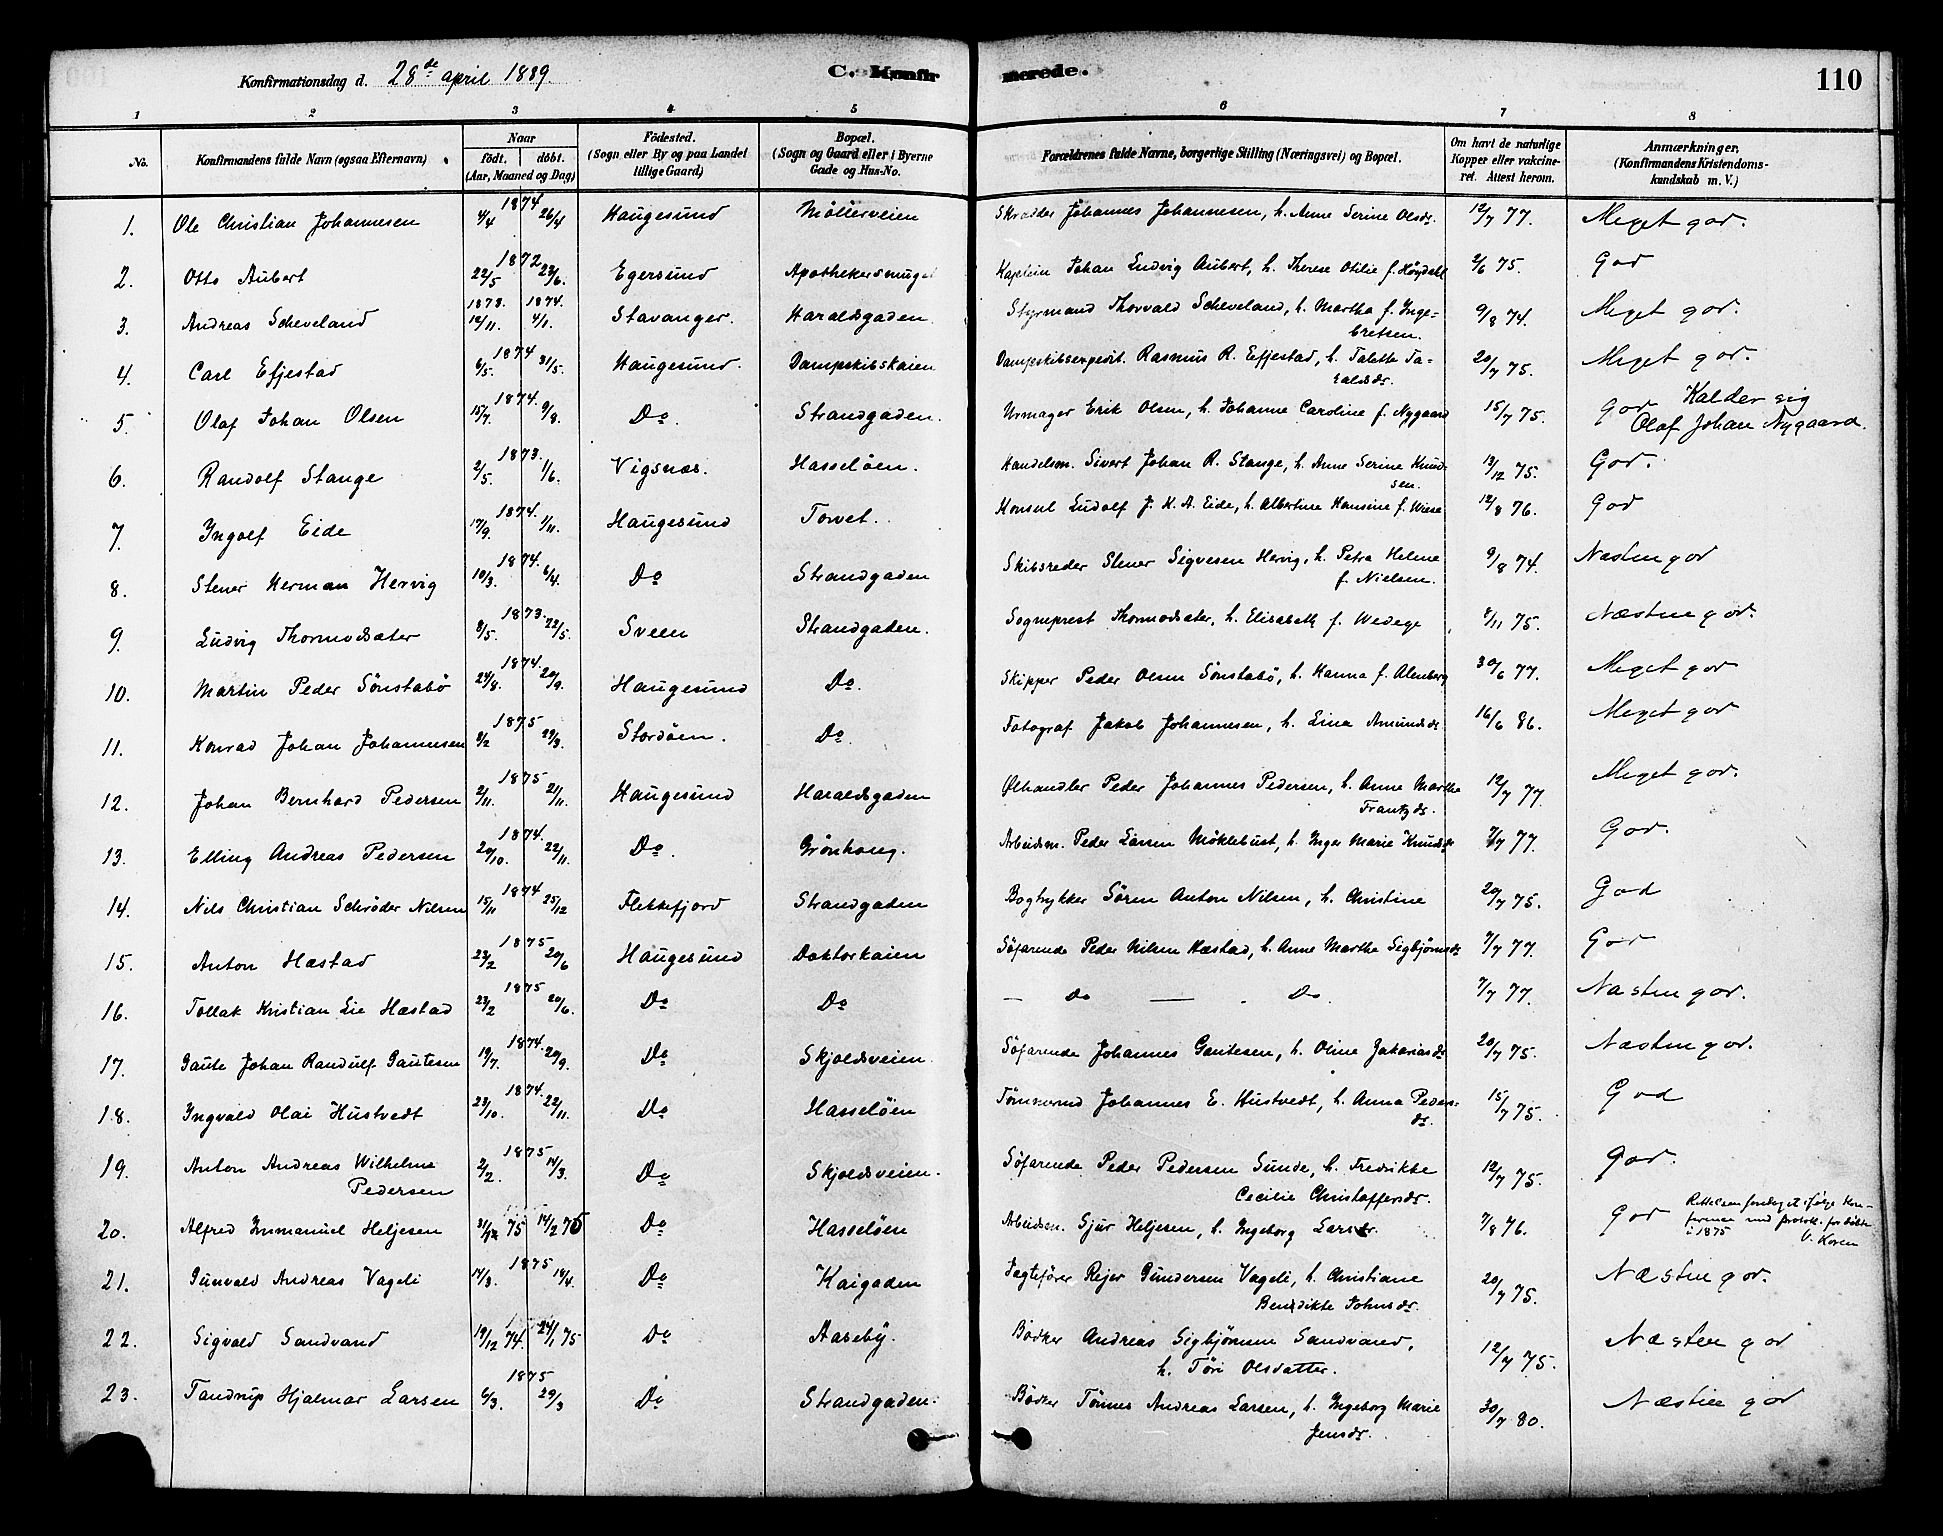 Konfirmationsdag d. 28de april 1889.
C. Konfirmerede.
110
1 2 3 4 5 6 7 8
No. Konfirmandens fulde Navn (ogsaa Efternavn) Naar født. døbt. (Aar, Maaned og Dag) Fødested. (Sogn eller By og paa Landet tillige Gaard) Bopæl. (Sogn og Gaard eller i Byerne Gade og Hus-No. Forældrenes fulde Navne, borgerlige Stilling (Næringsvei) og Bopæl. Om havt de naturlige Kopper eller vakcineret. Attest herom. Anmærkninger, (Konfirmandens Kristendomskundskab m. V.)
1. Ole Christian Johannesen 1874 4/4 26/4 Haugesund Möllerveien Skrædder Johannes Johannesen, h. Anne Serine Olsdr. 12/7 77. Meget god.
2. Otto Aubert 1872 22/5 23/6. Egersund Apothekersmuget Kaptein Johan Ludvig Aubert, h. Therese Otilie f. Höydahl 2/6 75. God
3. Andreas Scheveland 1873. 12/11. 1874. 4/1. Stavanger. Haraldsgaden. Styrmand Thorvald Scheveland, h. Martha f. Inge-
bretsen. 9/8 74. Meget god.
4. Carl Efjestad 1874 6/5. 31/5. Haugesund. Dampskibskaien Dampskibsexpedit. Rasmus R. Effjestad, h. Talette Ta-
raldsdr. 20/7 75. Meget god.
5. Olaf Johan Olsen 1874. 15/7. 9/8. Do. Strandgaden. Urmager Erik Olsen, h. Johanne Caroline f. Nygaard 15/7 75. God Kalder sig
Olaf Johan Nygaard.
6. Randolf Stange 1873. 2/5. 1/6. Vigsnæs. Hasselöen. Handelsm. Sivert Johan R. Stange, h. Anne Serine Knud-
sen. 13/12 75. God.
7. Ingolf Eide 1874. 17/9. 1/11. Haugesund Torvet. Konsul Ludolf J. K. A. Eide, h. Albertine Hansine f. Wiese 12/8 76. God
8. Stener Herman Hervig 1874. 10/3. 6/4. Do Strandgaden Skibsreder Stener Sigvesen Hervig, h. Petra Helene
f. Nielsen. 9/8 74. Næsten god
9. Ludvig Thormodsæter 1873. 8/5. 22/5. Sveen Strandgaden. Sogneprest Thormodsæter, h. Elisabeth f. Wedege 8/11 75. Næsten god.
10. Martin Peder Sönstabö 1874. 24/8. 20/9. Haugesund Do. Skipper Peder Olsen Sönstabö, h. Hanna f. Alenberg 30/6 77. Meget god
11. Konrad Johan Johannesen 1875 9/2 29/3. Stordöen. Do. Fotograf Jakob Johannesen, h. Lina Amundsdr. 16/6 86. Meget god
12. Johan Bernhard Pedersen 1875 2/11. 21/11. Haugesund Haraldsgaden Ölhandler Peder Johannes Pedersen, h. Anne Martha
Frantzdr. 12/7 77. Meget god.
13. Elling Andreas Pedersen 1874. 20/10. 22/11. Do. Grönhaug. Arbeidsm. Peder Larsen Möklebust, h. Inger Marie Knudsdr 7/7 77. God.
14. Nils Christian Schröder Nilsen 1874 15/11 25/12 Flekkefjord Strandgaden Bogtrykker Sören Anton Nilsen, h. Christine 20/7 75. God
15. Anton Hæstad 1875 23/2 20/6 Haugesund Doktorkaien Söfarende Peder Nilsen Hæstad, h. Anne Marthe Sigbjörnsdr 7/7 77. God
16. Tollak Kristian Lie Hæstad 1875 23/2 20/6. Do Do — Do — . Do 7/7 77. Næsten god.
17. Gaute Johan Randulf Gautesen 1874. 19/7. 20/9. Do Skjoldsveien. Söfarende Johannes Gautesen, h. Oline Zakariasdr 20/7 75. Næsten god.
18. Ingvald Olai Hustvedt 1874. 23/10. 22/11. Do Hasselöen Tömmermd Johannes E. Hustvedt, h. Anna Peders-
dr. 15/7 75. God
19. Anton Andreas Wilhelm
Pedersen 1875 2/2. 14/3. Do Skjoldsveien. Söfarende Peder Pedersen Sunde, h. Fredrikke
Cecilie Christoffersdr. 12/7 75. God.
20. Alfred Immanuel Heljesen 31/12 75 14/2 76 Do Hasselöen Arbeidsm. Gjur Heljesen, h. Ingeborg Larsdr. 7/8 76. God Rettelsen foretaget ifölge
med protok. for döbte
i 1875 V. Koren
21. Gunvald Andreas Vageli 1875 14/3. 18/4. Do Kaigaden Jagtefører Reier Gundersen Vageli, h. Christiane
Benedikte Johnsdr. 20/7 75. Næsten god.
22. Sigvald Sandvand 19/12 74. 24/1 75 Do Aaseby. Bödker Andreas Sigbjörnsen Sandvand,
h. Töri Olsdatter. 12/7 75. Næsten god
23. Tandrup Hjalmar Larsen 1875 6/3. 29/3 Do Strandgaden. Bödker Tönnes Andreas Larsen, h. Ingeborg Marie
Jensdr. 30/7 80. Næsten god